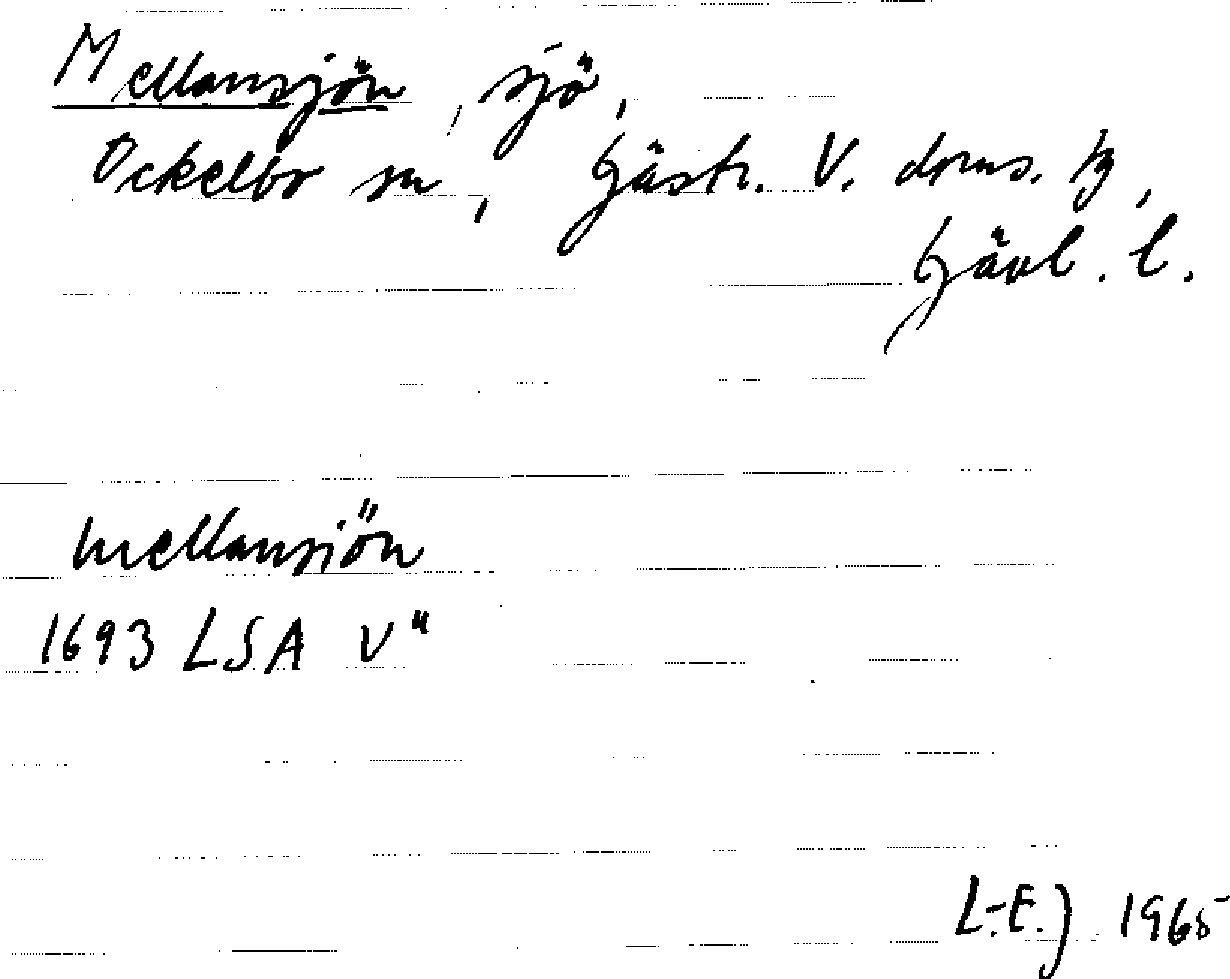 Mellansjön, sjö,
Ockelbo sn, Gästr. V. doms. tg,
Gävl. l.
Mellansiön
1693 LSA V"
L.-E. J 1965